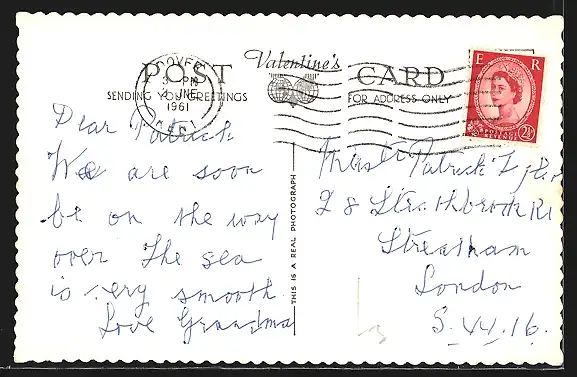 Valentine's
POST CARD
SENDING YOU GREETINGS
FOR ADDRESS ONLY
DOVER
3 PM
JNE
1961
E R
POSTAGE
2½
Dear Patrick.
We are soon
be on the way
over the sea
is very smooth.
Love Grandma
THIS IS A REAL PHOTOGRAPH
Patrick
28 Rd
Streatham
London
S.W.16.